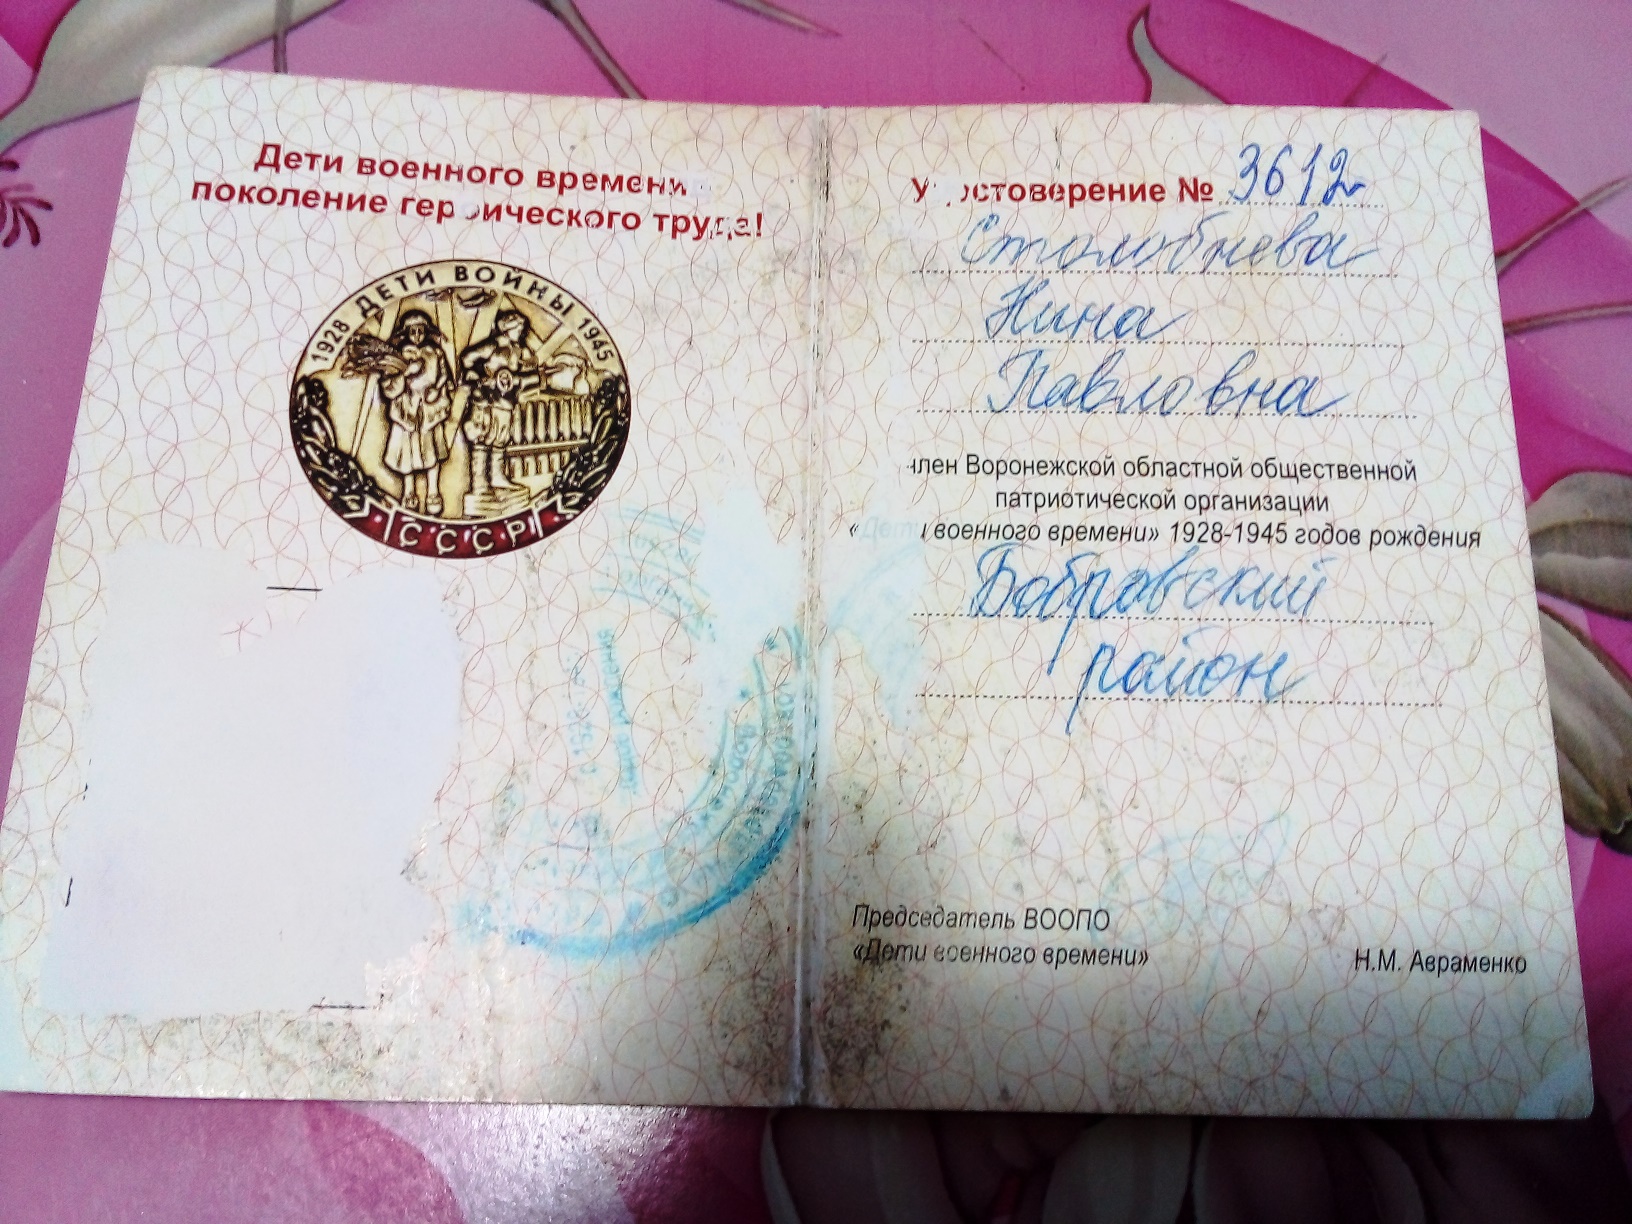 Дети военного времени
поколение героического труда!
1928 ДЕТИ ВОЙНЫ 1945
СССР
Удостоверение № 3612
Столобнева
Нина
Павловна
член Воронежской областной общественной
патриотической организации
«Дети военного времени» 1928-1945 годов рождения
Бобровский
район
Председатель ВООПО
«Дети военного времени»
Н.М. Авраменко